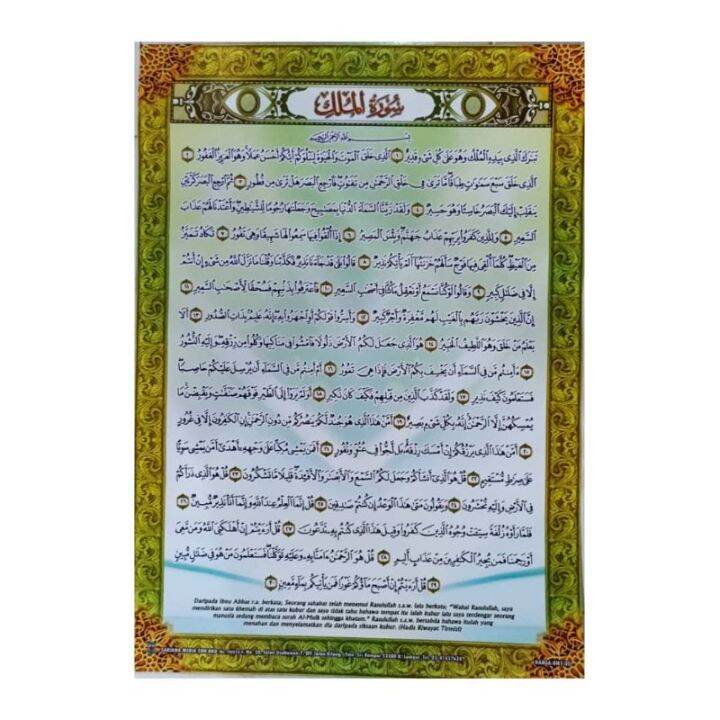 سورة الملك
بسم الله الرحمن الرحيم
تبرك الذي بيده الملك وهو على كل شيء قدير ١ الذي خلق الموت والحيوة ليبلوكم أيكم أحسن عملا وهو العزيز الغفور ٢
الذي خلق سبع سموت طباقا ما ترى في خلق الرحمن من تفوت فارجع البصر هل ترى من فطور ٣ ثم ارجع البصر كرتين
ينقلب إليك البصر خاسئا وهو حسير ٤ ولقد زينا السماء الدنيا بمصبيح وجعلنها رجوما للشيطين وأعتدنا لهم عذاب
السعير ٥ وللذين كفروا بربهم عذاب جهنم وبئس المصير ٦ إذا ألقوا فيها سمعوا لها شهيقا وهي تفور ٧ تكاد تميز
من الغيظ كلما ألقي فيها فوج سألهم خزنتها ألم يأتكم نذير ٨ قالوا بلى قد جاءنا نذير فكذبنا وقلنا ما نزل الله من شيء إن أنتم
إلا في ضلل كبير ٩ وقالوا لو كنا نسمع أو نعقل ما كنا في أصحب السعير ١٠ فاعترفوا بذنبهم فسحقا لأصحب السعير ١١
إن الذين يخشون ربهم بالغيب لهم مغفرة وأجر كبير ١٢ وأسروا قولكم أو اجهروا به إنه عليم بذات الصدور ١٣ ألا
يعلم من خلق وهو اللطيف الخبير ١٤ هو الذي جعل لكم الأرض ذلولا فامشوا في مناكبها وكلوا من رزقه وإليه النشور
١٥ ءأمنتم من في السماء أن يخسف بكم الأرض فإذا هي تمور ١٦ أم أمنتم من في السماء أن يرسل عليكم حاصبا
فستعلمون كيف نذير ١٧ ولقد كذب الذين من قبلهم فكيف كان نكير ١٨ أولم يروا إلى الطير فوقهم صفت ويقبضن ما
يمسكهن إلا الرحمن إنه بكل شيء بصير ١٩ أمن هذا الذي هو جند لكم ينصركم من دون الرحمن إن الكفرون إلا في غرور
٢٠ أمن هذا الذي يرزقكم إن أمسك رزقه بل لجوا في عتو ونفور ٢١ أفمن يمشي مكبا على وجهه أهدى أمن يمشي سويا
على صرط مستقيم ٢٢ قل هو الذي أنشأكم وجعل لكم السمع والأبصر والأفئدة قليلا ما تشكرون ٢٣ قل هو الذي ذرأكم
في الأرض وإليه تحشرون ٢٤ ويقولون متى هذا الوعد إن كنتم صدقين ٢٥ قل إنما العلم عند الله وإنما أنا نذير مبين ٢٦
فلما رأوه زلفة سيئت وجوه الذين كفروا وقيل هذا الذي كنتم به تدعون ٢٧ قل أرءيتم إن أهلكني الله ومن معي
أو رحمنا فمن يجير الكفرين من عذاب أليم ٢٨ قل هو الرحمن ءامنا به وعليه توكلنا فستعلمون من هو في ضلل مبين
٢٩ قل أرءيتم إن أصبح ماؤكم غورا فمن يأتيكم بماء معين ٣٠
Daripada Ibnu Abbas r.a. berkata; Seorang sahabat telah menemui Rasulullah s.a.w. lalu berkata; "Wahai Rasulullah, saya
mendirikan satu khemah di atas satu kubur dan saya tidak tahu bahawa tempat itu ialah kubur. Lalu saya terdengar seorang
manusia sedang membaca surah Al-Mulk sehingga khatam." Rasulullah s.a.w. bersabda bahawa itulah yang
menahan dan menyelamatkan dia daripada siksaan kubur. (Hadis Riwayat Tirmizi)